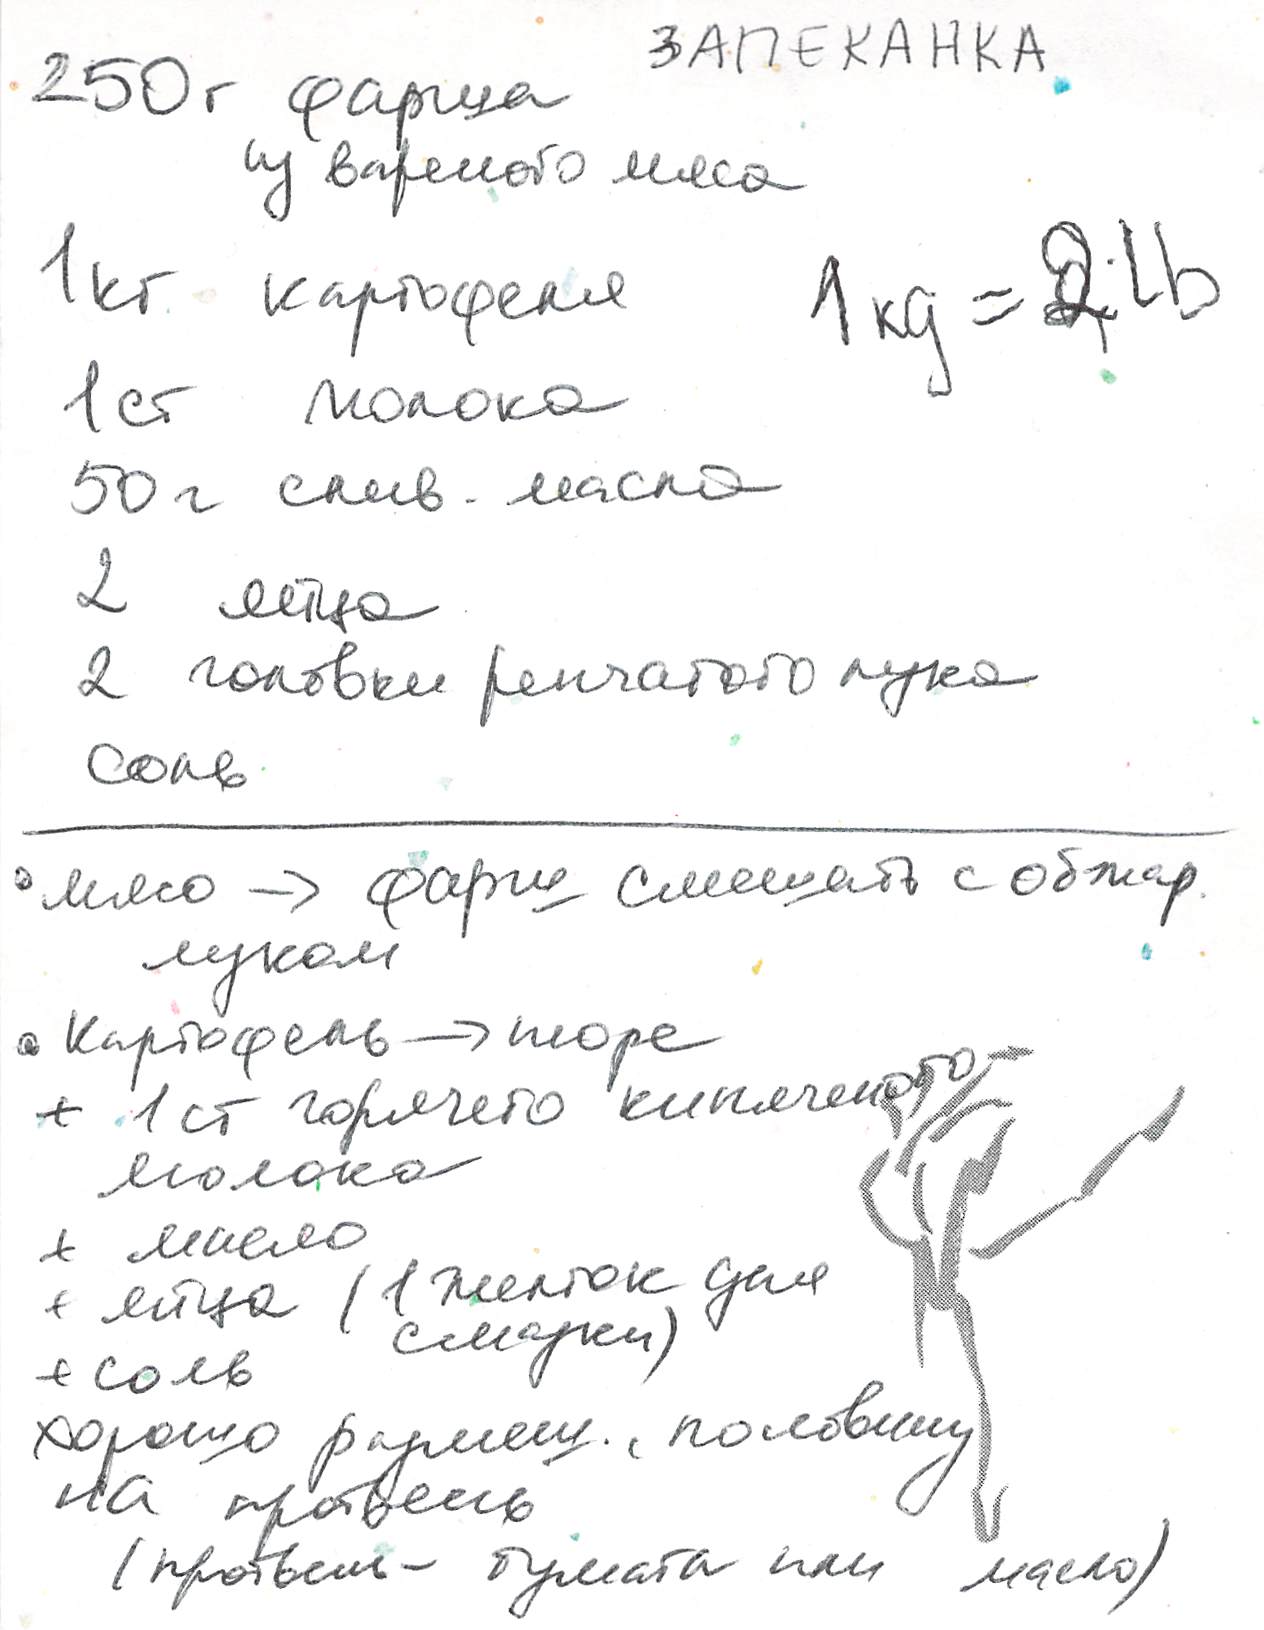 ЗАПЕКАНКА
250г фарша
из вареного мяса
1кг картофеля
1kg = 2 lb
1ст молока
50г слив. масла
2 яйца
2 головки репчатого лука
соль
• мясо → фарш смешать с обжар.
луком
• Картофель → пюре
+ 1ст горячего кипяченого
молока
+ масло
+ яйца (1 желток для
смазки)
+ соль
хорошо размеш., половину
на противень
(противень – бумага или масло)